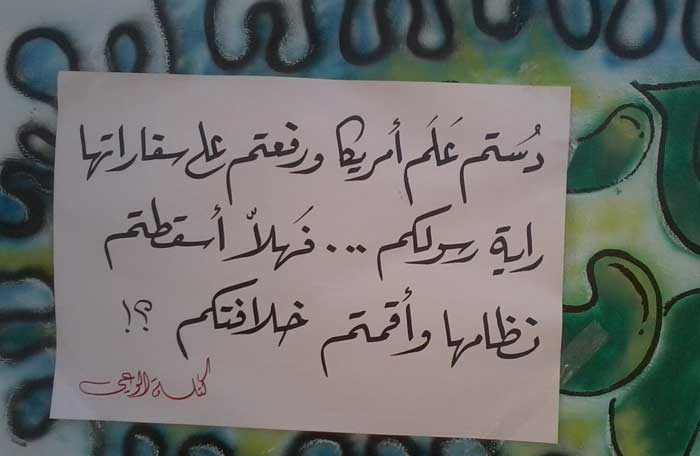 دُستم عَلَم أمريكا ورفعتم على سفاراتها
راية رسولكم ... فَهلاّ أسقطتم
نظامها وأقمتم خلافتكم ؟!
كتلة الوعي